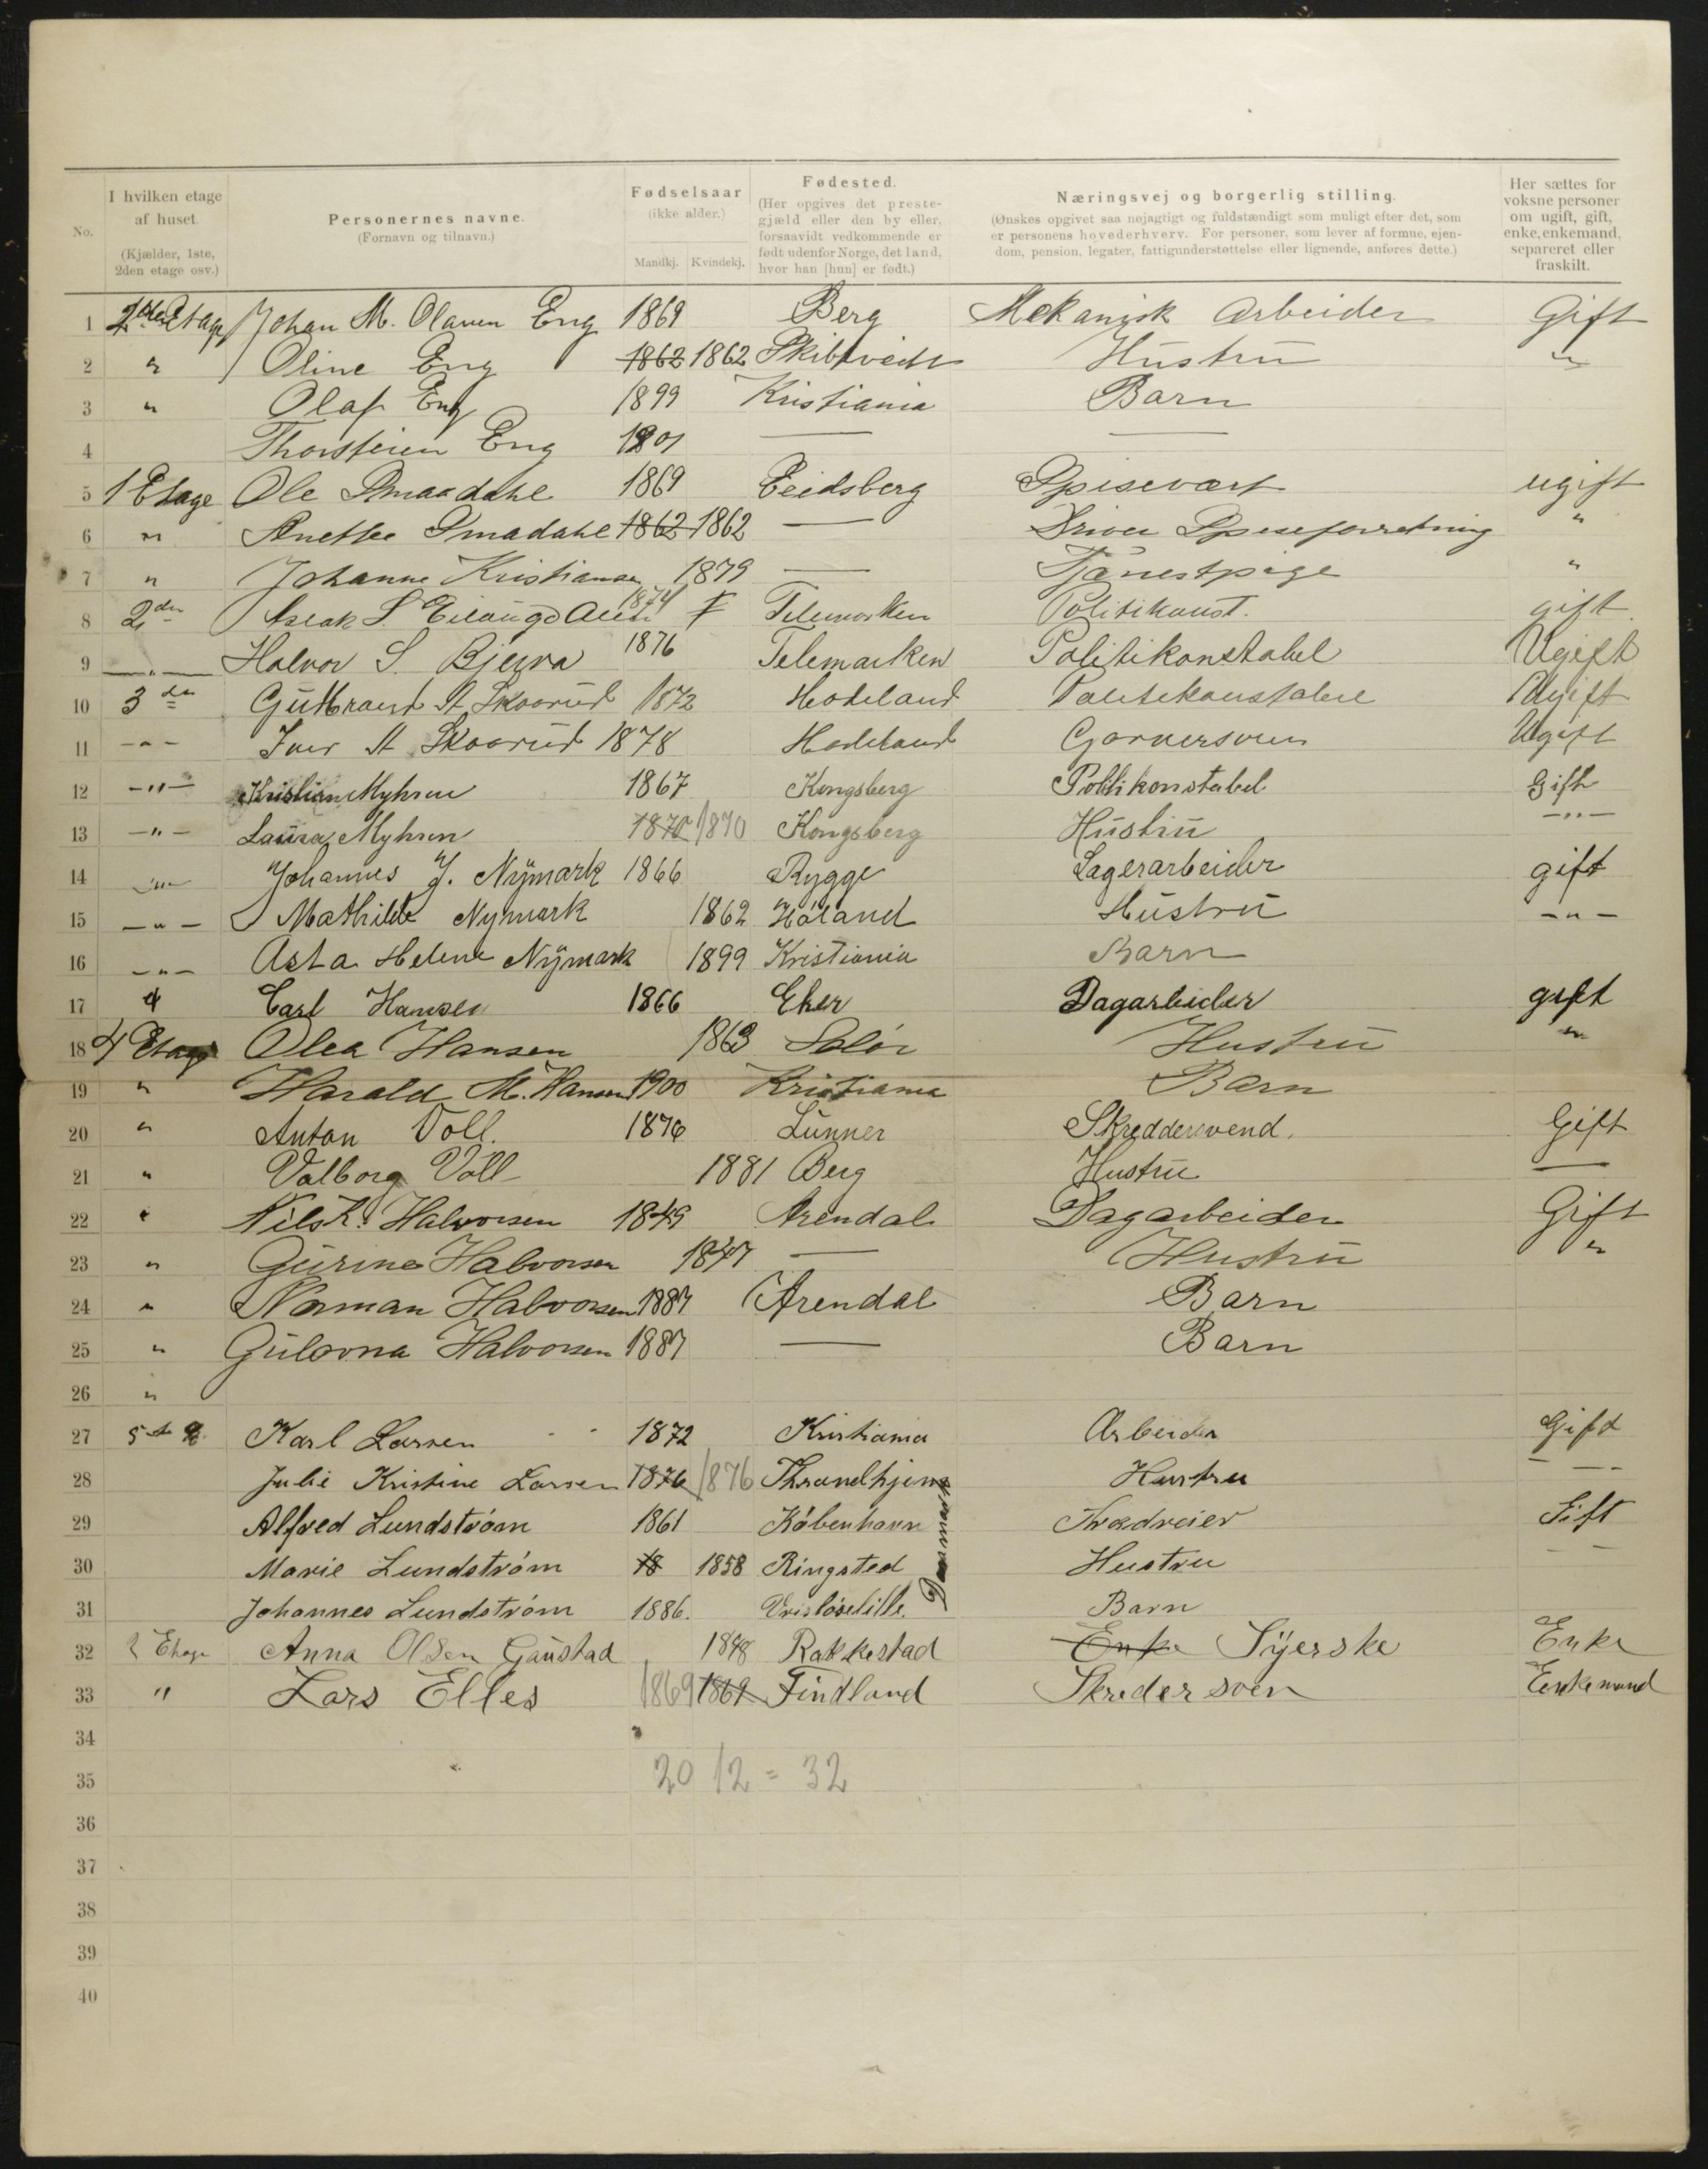 No.
I hvilken etage af huset. (Kjælder, 1ste, 2den etage osv.)
Personernes navne. (Fornavn og tilnavn.)
Fødselsaar (ikke alder.) Mandkj. Kvindekj.
Fødested. (Her opgives det prestegjæld eller den by eller, forsaavidt vedkommende er født udenfor Norge, det land, hvor han [hun] er født.)
Næringsvej og borgerlig stilling. (Ønskes opgivet saa nøjagtigt og fuldstændigt som muligt efter det, som er personens hovederhverv. For personer, som lever af formue, ejendom, pension, legater, fattigunderstøttelse eller lignende, anføres dette.)
Her sættes for voksne personer om ugift, gift, enke, enkemand, separeret eller fraskilt.
1 Etage Johan M. Olausen Eng 1869 Berg Mekanisk Arbeider Gift
2 " Oline Eng 1862 1862 Skibtvedt Hustru "
3 " Olaf Eng 1899 Kristiania Barn
4 Thorsteien Eng 1901 — —
5 1 Etage Ole Smaadahl 1869 Eidsberg Spisevært ugift
6 " Anette Smadahl 1862 1862 — Driver Spiseforretning "
7 " Johanne Kristiansen 1879 — Tjänestpige "
8 2den Aslak S. 1874 Telemarken Politikonst. gift
9 —"— Halvor S. Bjerva 1876 Telemarken Politikonstabel Ugift
10 3den Guttbrand A Skoorud 1872 Hadeland Politikonstabel Ugift
11 -"- Iver A Skoorud 1878 Hadeland Garversven Ugift
12 -"- Kristian Myhren 1867 Kongsberg Politikonstabel Gift
13 -"- Laura Myhren 1870 1870 Kongsberg Hustru -"-
14 -"- Johannes J. Nymark 1866 Rygge Lagerarbeider gift
15 -"- Mathilde Nymark 1862 Höland Hustru -"-
16 -"- Asta Helene Nymark 1899 Kristiania Barn
17 4 Carl Hansen 1866 Eker Dagarbeider gift
18 4 Etage Olea Hansen 1863 Solör Hustru "
19 " Harald M. Hansen 1900 Kristiania Barn
20 " Anton Voll. 1876 Lunner Skreddersvend. Gift
21 " Valborg Voll 1881 Berg Hustru —
22 " Nils K. Halvorsen 1849 Arendal Dagarbeider Gift
23 " Gurine Halvorsen 1847 — Hustru "
24 " Norman Halvorsen 1887 Arendal Barn
25 " Gulovna Halvorsen 1887 — Barn
26 "
27 5te Karl Larsen 1872 Kristiania Arbeider Gift
28 Julie Kristine Larsen 1876 1876 Throndhjem Hustru —
29 Alfred Lundström 1861 Köbenhavn Trædreier Gift
30 Marie Lundström 18 1858 Ringsted Danmark Hustru —
31 Johannes Lundström 1886. Vrislöselille. Barn
32 2 Etage Anna Olsen Gaustad 1848 Rakkestad Enke Syerske Enke
33 " Lars Elles 1869 1869 Findland Skredersven Enkemand
34
35 20 12 = 32
36
37
38
39
40